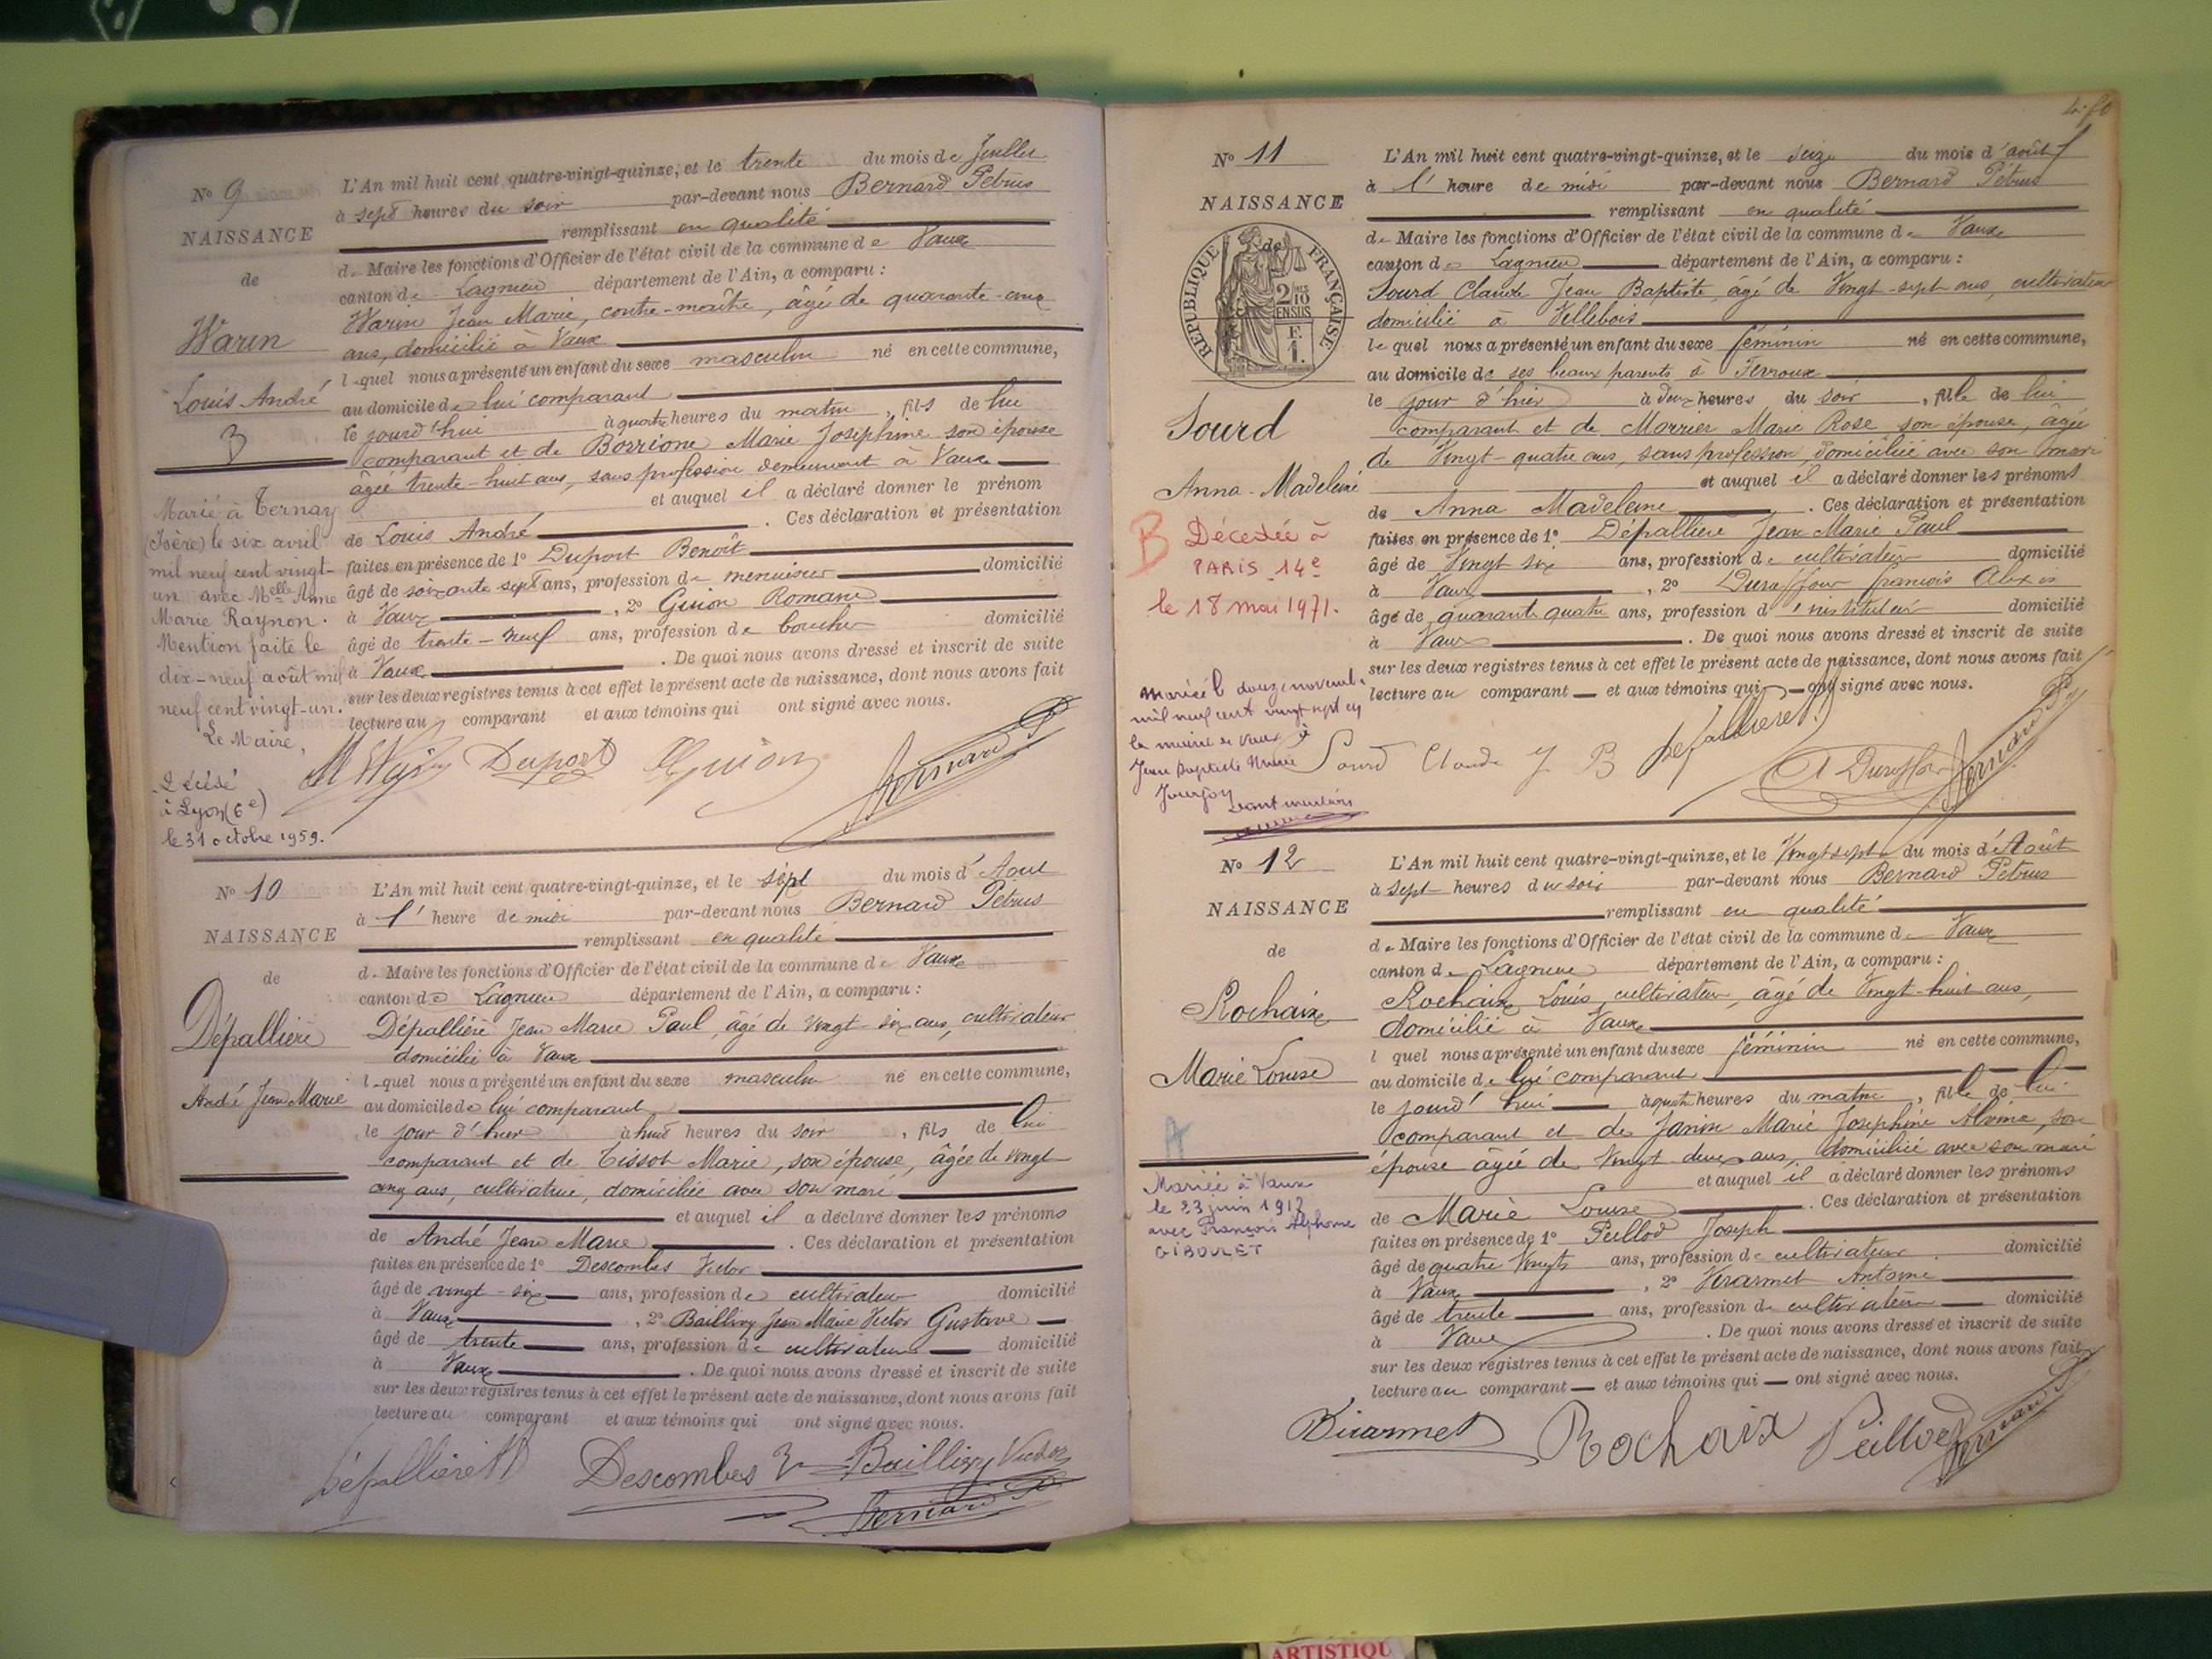 N° 9
NAISSANCE
de
Warin
Louis André
3
Marié à Ternay
(Isère) le six avril
mil neuf cent vingt-
un avec Melle Anne
Marie Raynon.
Mention faite le
dix-neuf août mil
neuf cent vingt-un.
Le Maire,
Décédé
à Lyon (6e)
le 31 octobre 1959.
L'An mil huit cent quatre-vingt-quinze, et le trente du mois de Juillet
à sept heures du soir par-devant nous Bernard Pétrus
remplissant en qualité
de Maire les fonctions d'Officier de l'état civil de la commune de Vaux
canton de Lagnieu département de l'Ain, a comparu :
Warin Jean Marie, contre-maître, âgé de quarante-cinq
ans, domicilié à Vaux
lequel nous a présenté un enfant du sexe masculin né en cette commune,
au domicile de lui comparant
le jourd'hui à quatre heures du matin, fils de lui
comparant et de Borrione Marie Joséphine son épouse
âgée trente-huit ans, sans profession demeurant à Vaux
et auquel il a déclaré donner le prénom
de Louis André. Ces déclaration et présentation
faites en présence de 1° Duport Benoît
âgé de soixante sept ans, profession de menuisier domicilié
à Vaux, 2° Guion Romane
âgé de trente-neuf ans, profession de boucher domicilié
à Vaux. De quoi nous avons dressé et inscrit de suite
sur les deux registres tenus à cet effet le présent acte de naissance, dont nous avons fait
lecture au comparant et aux témoins qui ont signé avec nous.
Duport Guion Bernard P
N° 10
NAISSANCE
de
Dépallière
André Jean Marie
L'An mil huit cent quatre-vingt-quinze, et le sept du mois d'Aout
à l'heure de midi par-devant nous Bernard Pétrus
remplissant en qualité
de Maire les fonctions d'Officier de l'état civil de la commune de Vaux
canton de Lagnieu département de l'Ain, a comparu :
Dépallière Jean Marie Paul, âgé de vingt-six ans, cultivateur
domicilié à Vaux
lequel nous a présenté un enfant du sexe masculin né en cette commune,
au domicile de lui comparant
le jour d'hier à huit heures du soir, fils de lui
comparant et de Tissot Marie, son épouse, âgée de vingt
cinq ans, cultivatrice, domiciliée avec son mari
et auquel il a déclaré donner les prénoms
de André Jean Marie. Ces déclaration et présentation
faites en présence de 1° Descombes Victor
âgé de vingt-six ans, profession de cultivateur domicilié
à Vaux, 2° Baillivy Jean Marie Victor Gustave
âgé de trente ans, profession de cultivateur domicilié
à Vaux. De quoi nous avons dressé et inscrit de suite
sur les deux registres tenus à cet effet le présent acte de naissance, dont nous avons fait
lecture au comparant et aux témoins qui ont signé avec nous.
Dépallière Descombes V Baillivy Victor
Bernard P
N° 11
NAISSANCE
de
RÉPUBLIQUE FRANÇAISE
2 10
EN SUS
F.
1.
Sourd
Anna-Madeleine
B Décédée à
PARIS 14e
le 18 mai 1971.
Mariée le douze novembre
mil neuf cent vingt sept en
la mairie de Vaux à
Jean Baptiste Marie
Jourjon
L'An mil huit cent quatre-vingt-quinze, et le seize du mois d'août
à l'heure de midi par-devant nous Bernard Pétrus
remplissant en qualité
de Maire les fonctions d'Officier de l'état civil de la commune de Vaux
canton de Lagnieu département de l'Ain, a comparu :
Sourd Claude Jean Baptiste, âgé de Vingt-sept ans, cultivateur
domicilié à Villebois
lequel nous a présenté un enfant du sexe féminin né en cette commune,
au domicile de ses beaux parents à Ferroux
le jour d'hier à deux heures du soir, fille de lui
comparant et de Morrier Marie Rose son épouse, âgée
de Vingt-quatre ans, sans profession, domiciliée avec son mari
et auquel il a déclaré donner les prénoms
de Anna Madeleine. Ces déclaration et présentation
faites en présence de 1° Dépallière Jean Marie Paul
âgé de Vingt six ans, profession de cultivateur domicilié
à Vaux, 2° Duraffour françois Alexis
âgé de quarante quatre ans, profession d'instituteur domicilié
à Vaux. De quoi nous avons dressé et inscrit de suite
sur les deux registres tenus à cet effet le présent acte de naissance, dont nous avons fait
lecture au comparant et aux témoins qui ont signé avec nous.
Sourd Claude J B Depallière A Duraffour Bernard P
N° 12
NAISSANCE
de
Rochaix
Marie Louise
A
Mariée à Vaux
le 23 juin 1917
avec François Alphonse
GIBOULET
L'An mil huit cent quatre-vingt-quinze, et le Vingt sept du mois d'Août
à sept heures du soir par-devant nous Bernard Pétrus
remplissant en qualité
de Maire les fonctions d'Officier de l'état civil de la commune de Vaux
canton de Lagnieu département de l'Ain, a comparu :
Rochaix Louis, cultivateur, âgé de Vingt-huit ans,
domicilié à Vaux
lequel nous a présenté un enfant du sexe féminin né en cette commune,
au domicile de lui comparant
le jourd'hui à quatre heures du matin, fille de lui
comparant et de Janin Marie Joséphine, son
épouse âgée de Vingt-deux ans, domiciliée avec son mari
et auquel il a déclaré donner les prénoms
de Marie Louise. Ces déclaration et présentation
faites en présence de 1° Peillod Joseph
âgé de quatre Vingts ans, profession de cultivateur domicilié
à Vaux, 2° Virarmet Antoine
âgé de trente ans, profession de cultivateur domicilié
à Vaux. De quoi nous avons dressé et inscrit de suite
sur les deux registres tenus à cet effet le présent acte de naissance, dont nous avons fait
lecture au comparant et aux témoins qui ont signé avec nous.
Rochaix Peillod Bernard P
ARTISTIQU